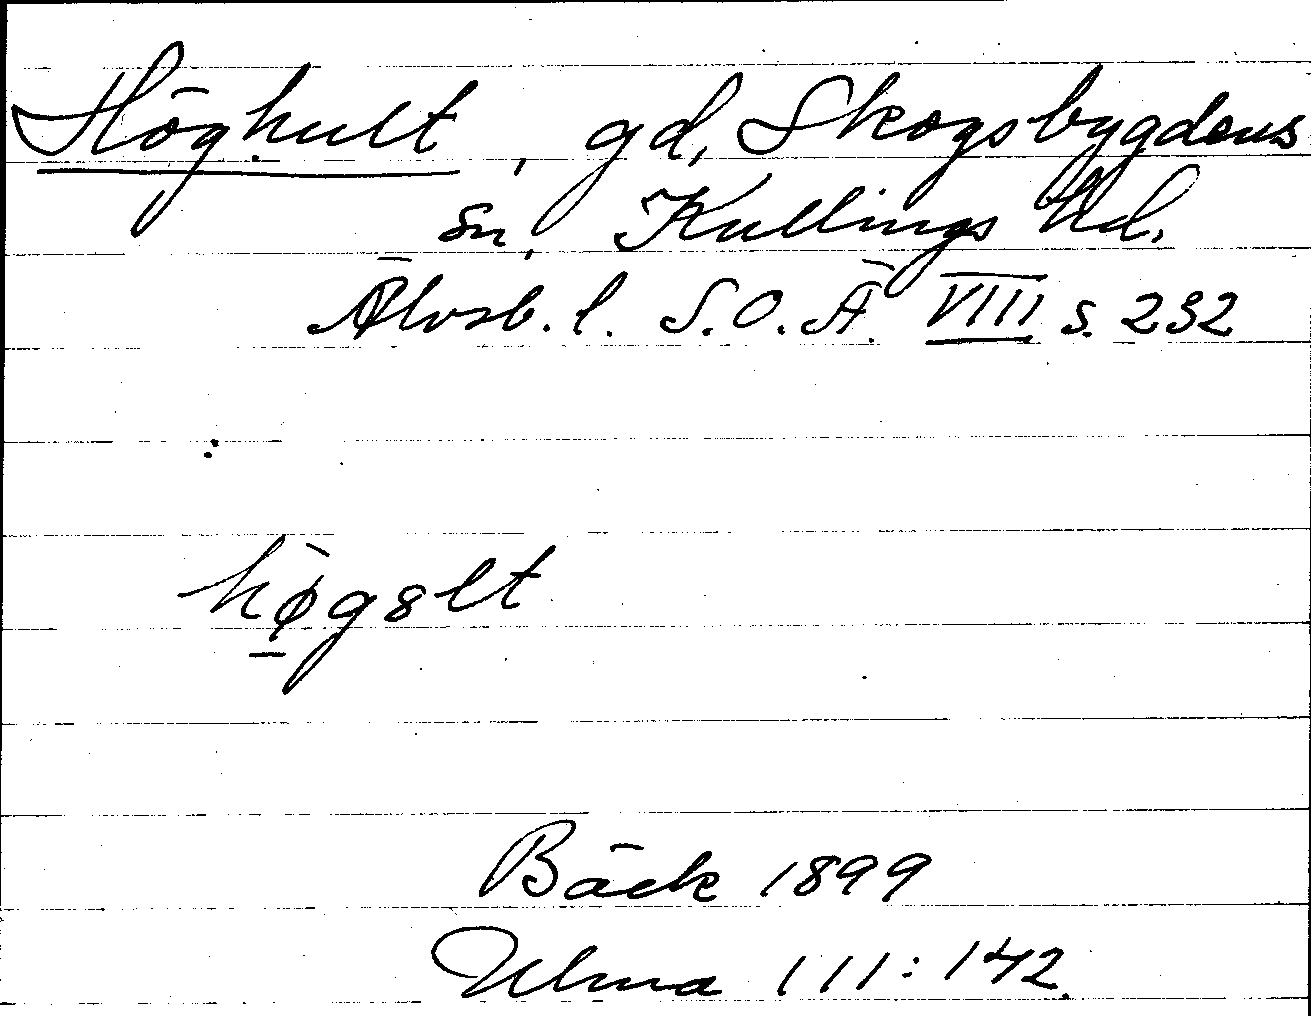 Höghult, gd, Skogsbygdens
sn, Kullings hd.
Älvsb. l. S.O.Ä. VIII s. 232
hø̀g8lt
Bäck 1899
Ulma 111:142.